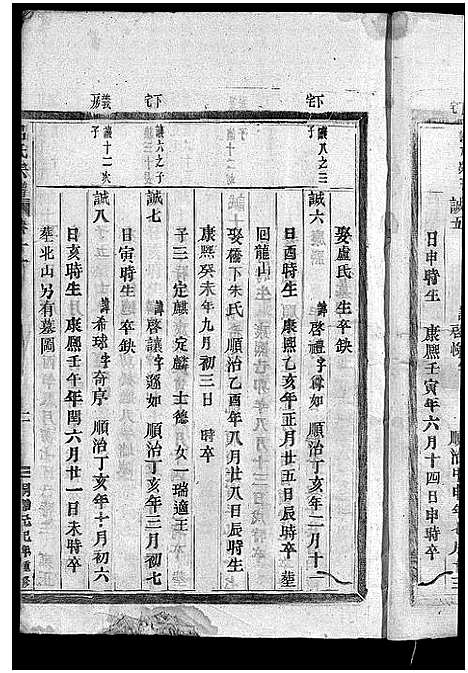 誠五
日申時生 康熙壬寅年六月十四日申時卒
下宅
議八之三子
娶盧氏 生卒缺
誠六 諱啓禮字
順治丁亥年二月十二
日酉時生 康熙乙亥年正月廿五日辰時卒 葬
回龍山
娶橋下朱氏 順治乙酉年八月廿八日辰時生
康熙癸未年九月初三日 時卒
子三 定麒 定麟 士德 女一瑞適王
下宅
議六之子
誠七 諱啓讓字遜如 順治丁亥年三月初七
日寅時生 卒缺
義房
議十二次子
誠八 諱希球字奇序 順治丁亥年十月初六
日亥時生 康熙壬午年閏六月廿一日未時卒
葬北山另有墓圖
氏宗譜